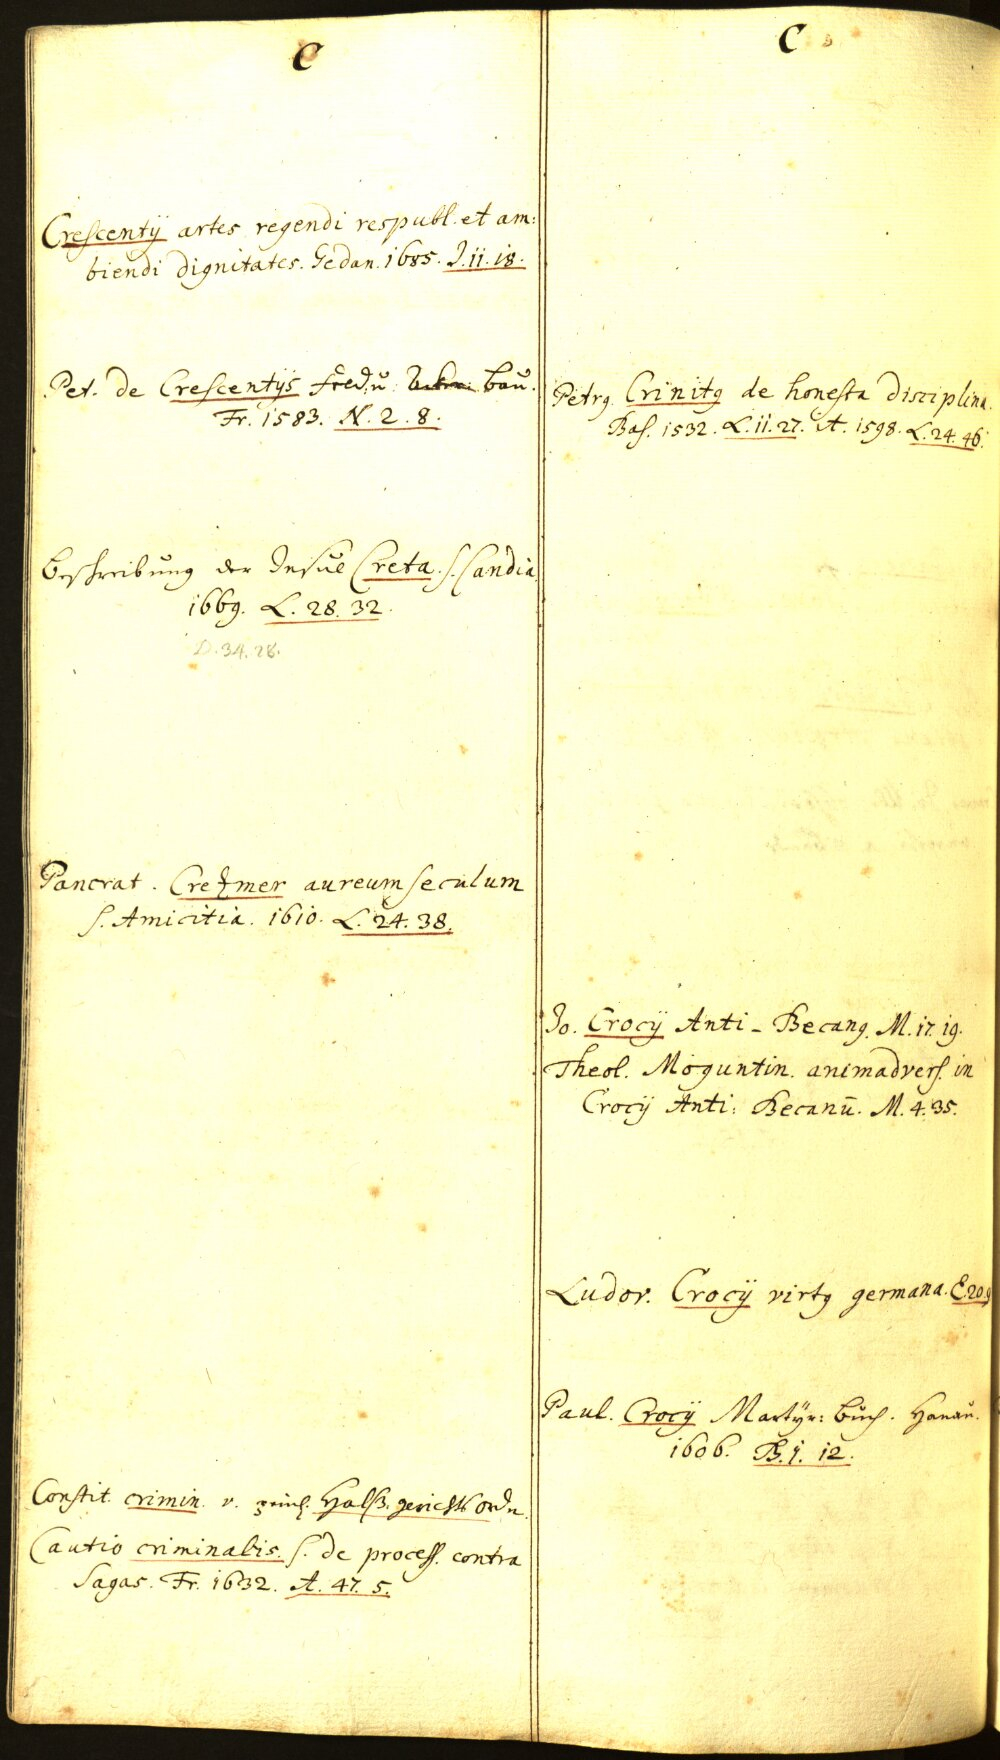 C
Crescentÿ artes regendi respubl. et am:
biendi dignitates. Gedan. 1685. J. 11. 18.
Pet. de Crescentÿs Feldu. bau.
Fr. 1583. N. 2. 8.
Beschreibung der Insul Creta. s. Candia
1669. L. 28. 32.
D. 34. 28.
Pancrat. Cretzmer aureum seculum
s. Amicitia. 1610. L. 24. 38.
Constit. crimin. v. peinl. Halß. gerichts Ordn.
Cautio criminalis. s. de process. contra
Sagas. Fr. 1632. A. 47. 5.
C
Petrꝰ Crinitꝰ de honesta disciplina.
Bas. 1532. L. 11. 27. it. 1598. L. 24. 46.
Jo. Crocÿ Anti-Becanꝰ. M. 17. 19.
Theol. Moguntin. animadvers. in
Crocÿ Anti: Becanū. M. 4. 35.
Ludov. Crocÿ virtꝰ germana. E. 20. 9
Paul. Crocÿ Martÿr: buch. Hanau.
1606. B. 1. 12.